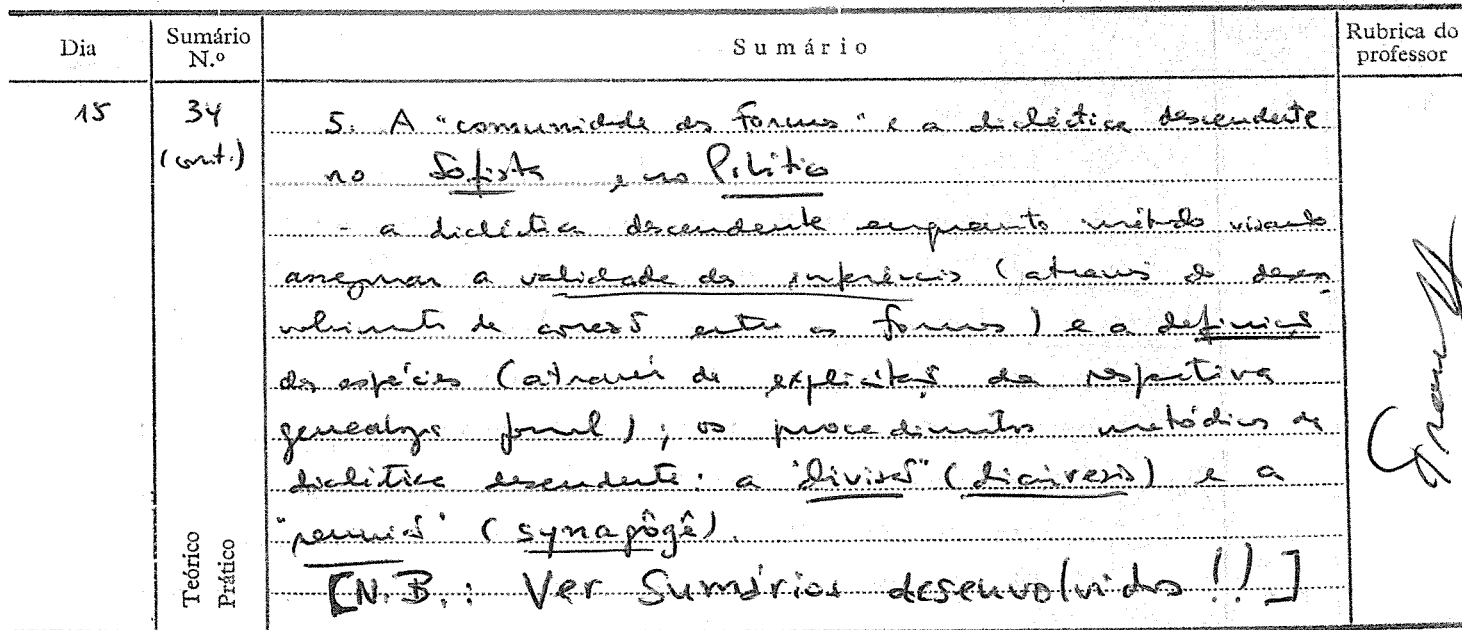 Dia
Sumário
N.º
Sumário
Rubrica do
professor
15
34
(cont.)
5. A "comunidade das Formas" e a dialéctica descendente
no Sofista e no Político
- a dialéctica descendente enquanto método visando
assegurar a validade das inferências (através do desen
volvimento de conexões entre as formas) e a definição
das espécies (através da explicitação da respectiva
genealogia formal); os procedimentos metódicos da
dialéctica descendente: a "divisão" (diairesis) e a
"reunião" (synagôgê).
[N.B.: Ver Sumários desenvolvidos!!]
Teórico
Prático